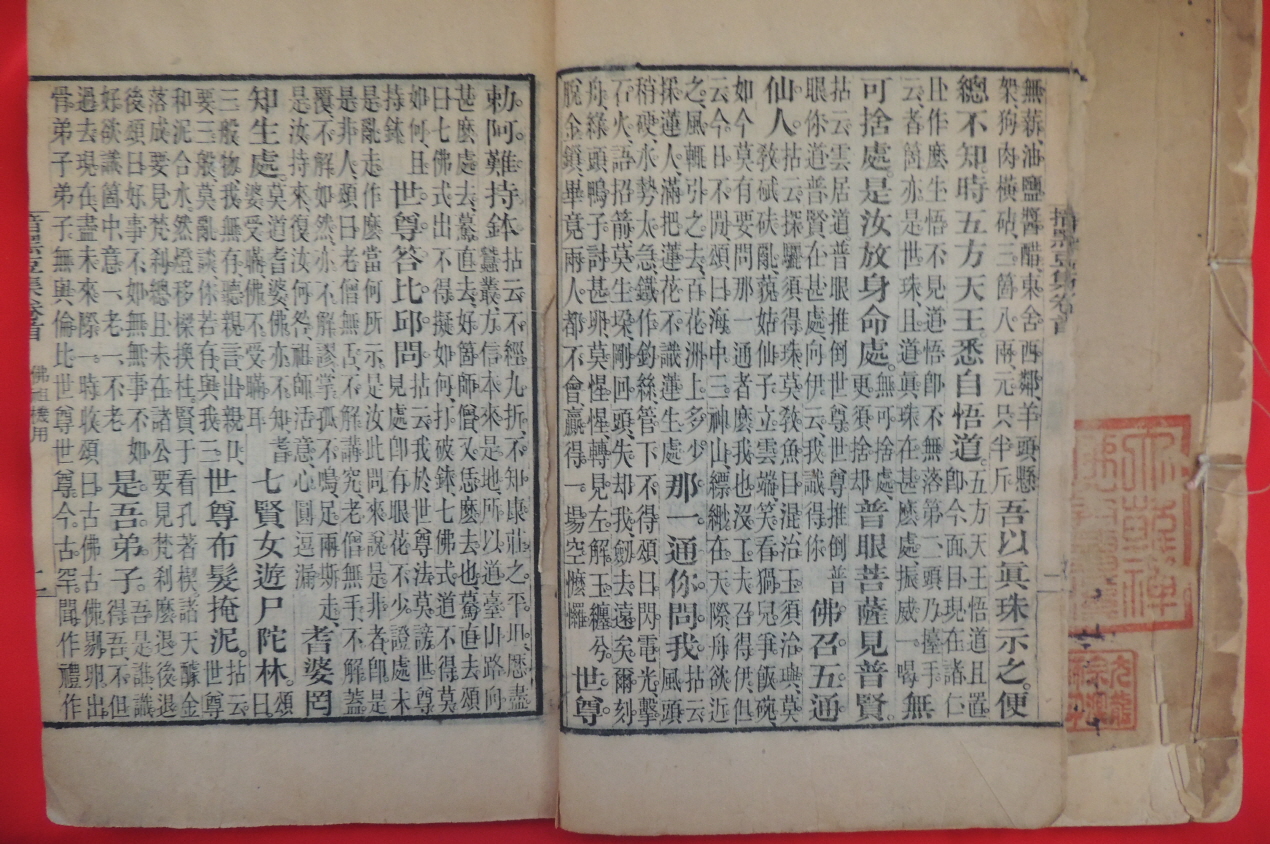 無蒜油鹽醬醋東舍西鄰羊頭懸
架狗肉橫砧三箇八兩元只半斤
吾以眞珠示之便
總不知時五方天王悉自悟道。
五方天王悟道且置
卽今面目現在諸仁
且作麽生悟不見道悟卽不無落第二頭乃擡手
云者箇亦是世珠且道眞珠在甚麽處振威一喝
無
可捨處是汝放身命處。
無可捨處
更須捨却
普眼菩薩見普賢。
拈云雲居道普眼推倒世尊世尊推倒普
眼你道普賢在甚處向伊云我識得你
佛召五通
仙人
拈云探驪須得珠莫敎魚目混治玉須治璵莫
敎碔砆亂藐姑仙子立雲端笑看猧兒爭飯碗
如今莫有要問那一通者麽我也沒工夫召得伊但
云今日不閒頌曰海中三神山縹緲在天際舟欲近
之風輒引之去百花洲上多少
採蓮人滿把蓮花不識蓮生處
那一通你問我
拈云
風頭
稍硬水勢太急鐵作鈎絲管下不得頌曰閃電光擊
石火語招箭莫生垛剛回頭失却我劔去遠矣爾刻
舟綠頭鴨子討甚卵莫惺惺轉見左解玉纏兮
脫金鎖畢竟兩人都不會贏得一場空懡㦬
世尊
勅阿難持鉢
拈云不經九折不知康莊之平坦歷盡
蠶叢方信本來是地所以道臺山路向
甚麽處去驀直去好箇師僧又恁麽去也驀直去頌
曰七佛式出不得擬如何打破鉢七佛式道不得莫
如何且
持鉢
世尊答比邱問
拈云我於世尊法莫謗世尊
見處卽有眼花不少證處未
是亂走作麽當何所示是汝此問來說是非者卽是
是非人頌曰老僧無舌不解講究老僧無手不解蓋
覆不解如然亦不解謬掌孤不鳴足兩斯走
是汝持來復汝何咎祖師活意心圓逗漏
耆婆罔
知生處
莫道耆婆佛亦不知耆
婆受瞞佛不受瞞耳
七賢女遊尸陀林
頌
曰
三般物我無存聽親言出親口
要三般莫亂談你若有與我三
世尊布髮掩泥。
拈云
世尊
和泥合水然燈移樑換柱賢于看孔著楔諸天釀金
落成要見梵刹總且未在諸公要見梵刹麽退後退
後頌曰好事不如無無事不如
好欲識箇中意一老一不老
是吾弟子
吾是誰識
得吾不但
過去現在盡未來際一時收頌曰古佛古佛剔卵出
骨弟子弟子無與倫比世尊世尊今古罕聞作禮作
佛祖機用